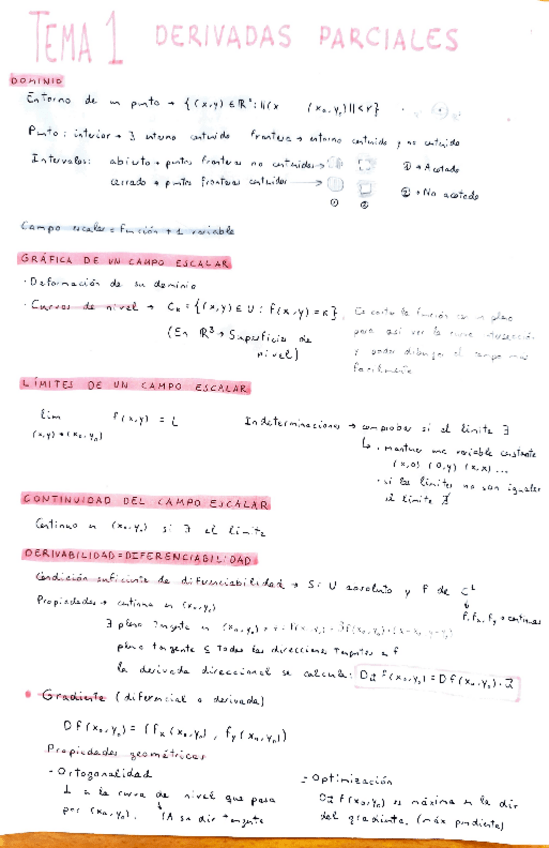 TEMA 1 DERIVADAS PARCIALES
DOMINIO
Entorno de un punto → {(x,y) ∈ ℝ²: ||(x (x₀,y₀)|| < r}
Punto: interior → ∃ entorno contenido frontera → entorno contenido y no contenido
Intervalos: abierto → puntos fronteras no contenidos → ① → Acotado
cerrado → puntos fronteras contenidos → ② → No acotado
① ②
Campo escalar = función + 1 variable
GRÁFICA DE UN CAMPO ESCALAR
· Deformación de su dominio
· Curvas de nivel → Cₖ = {(x,y) ∈ U : f(x,y) = k}. Es cortar la función con un plano
para así ver la curva intersección
(En ℝ³ → Superficie de
y poder dibujar el campo más
nivel)
facilmente
LÍMITES DE UN CAMPO ESCALAR
lim f(x,y) = L Indeterminaciones → comprobar si el límite ∃
(x,y)→(x₀,y₀)
↳ · mantener una variable constante
(x,0) (0,y) (x,x) ...
· si los límites no son iguales
el límite ∄
CONTINUIDAD DEL CAMPO ESCALAR
Continuo en (x₀,y₀) si ∃ el límite
DERIVABILIDAD = DIFERENCIABILIDAD
Condición suficiente de diferenciabilidad → Si U y f de C¹
Propiedades → continua en (x₀,y₀) f, fₓ, f_y → continuas
∃ plano tangente en (x₀,y₀)
plano tangente ⊆ todas las direcciones tangentes a f
la derivada direccional se calcula: D_u⃗ f(x₀,y₀) = Df(x₀,y₀) · u⃗
• Gradiente (diferencial o derivada)
Df(x₀,y₀) = (fₓ(x₀,y₀), f_y(x₀,y₀))
Propiedades geométricas
- Ortogonalidad
⊥ a la curva de nivel que pasa
por (x₀,y₀). A su dir tangente
- Optimización
D_u⃗ f(x₀,y₀) es máxima en la dir
del gradiente. (máx pendiente)